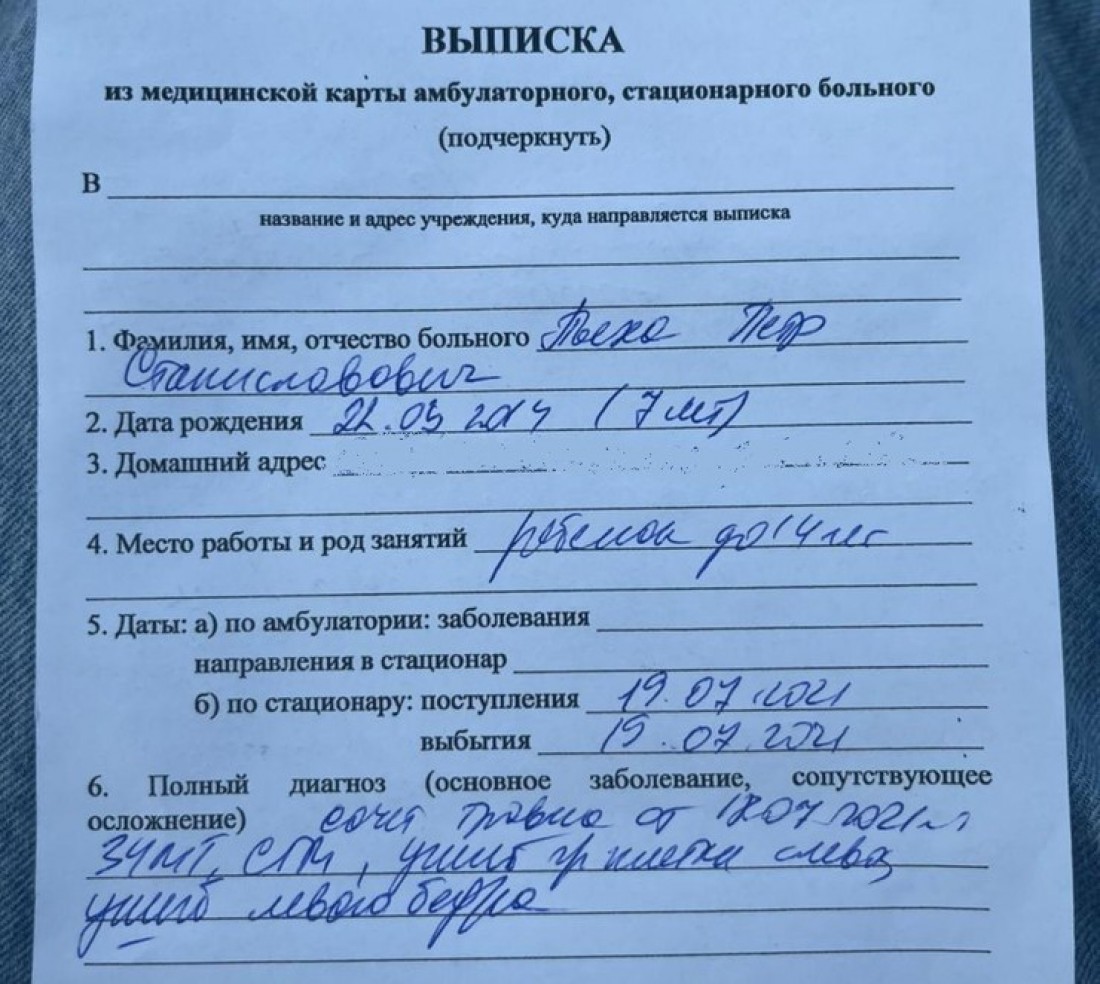 ВЫПИСКА
из медицинской карты амбулаторного, стационарного больного
(подчеркнуть)
В
название и адрес учреждения, куда направляется выписка
1. Фамилия, имя, отчество больного Пьеха Петр
Станиславович
2. Дата рождения 22.03 2014 (7 лет)
3. Домашний адрес
4. Место работы и род занятий ребенок до 14 лет
5. Даты: а) по амбулатории: заболевания
направления в стационар
б) по стационару: поступления 19.07.2021
выбытия 19.07.2021
6. Полный диагноз (основное заболевание, сопутствующее
осложнение) соч травма от 2021
ЗЧМТ, СГМ, ушиб гр клетки слева,
ушиб левого бедра